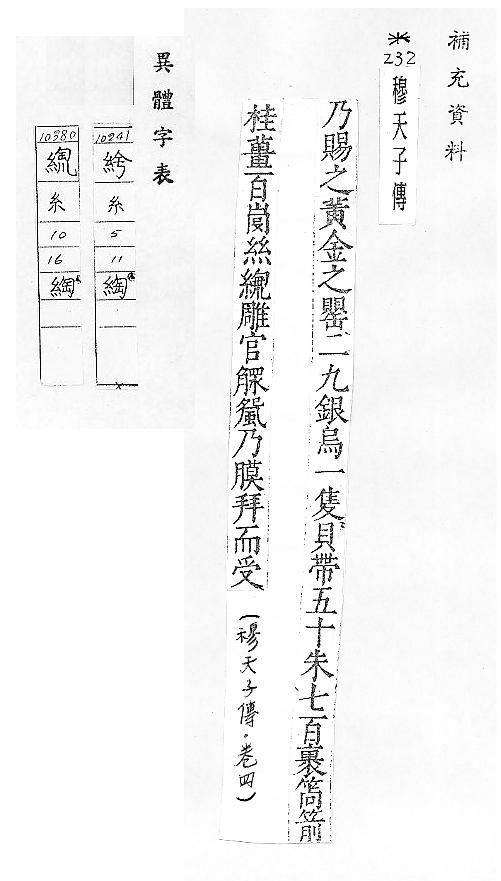 補充資料
※
232
穆天子傳
乃賜之黃金之罌二九銀烏一隻貝帶五十朱七百裹筩箭
桂薑百䇹絲雕官乃膜拜而受
(穆天子傳·卷四)
異體字表
10241
糸
5
11
綯
10380
糸
10
16
綯